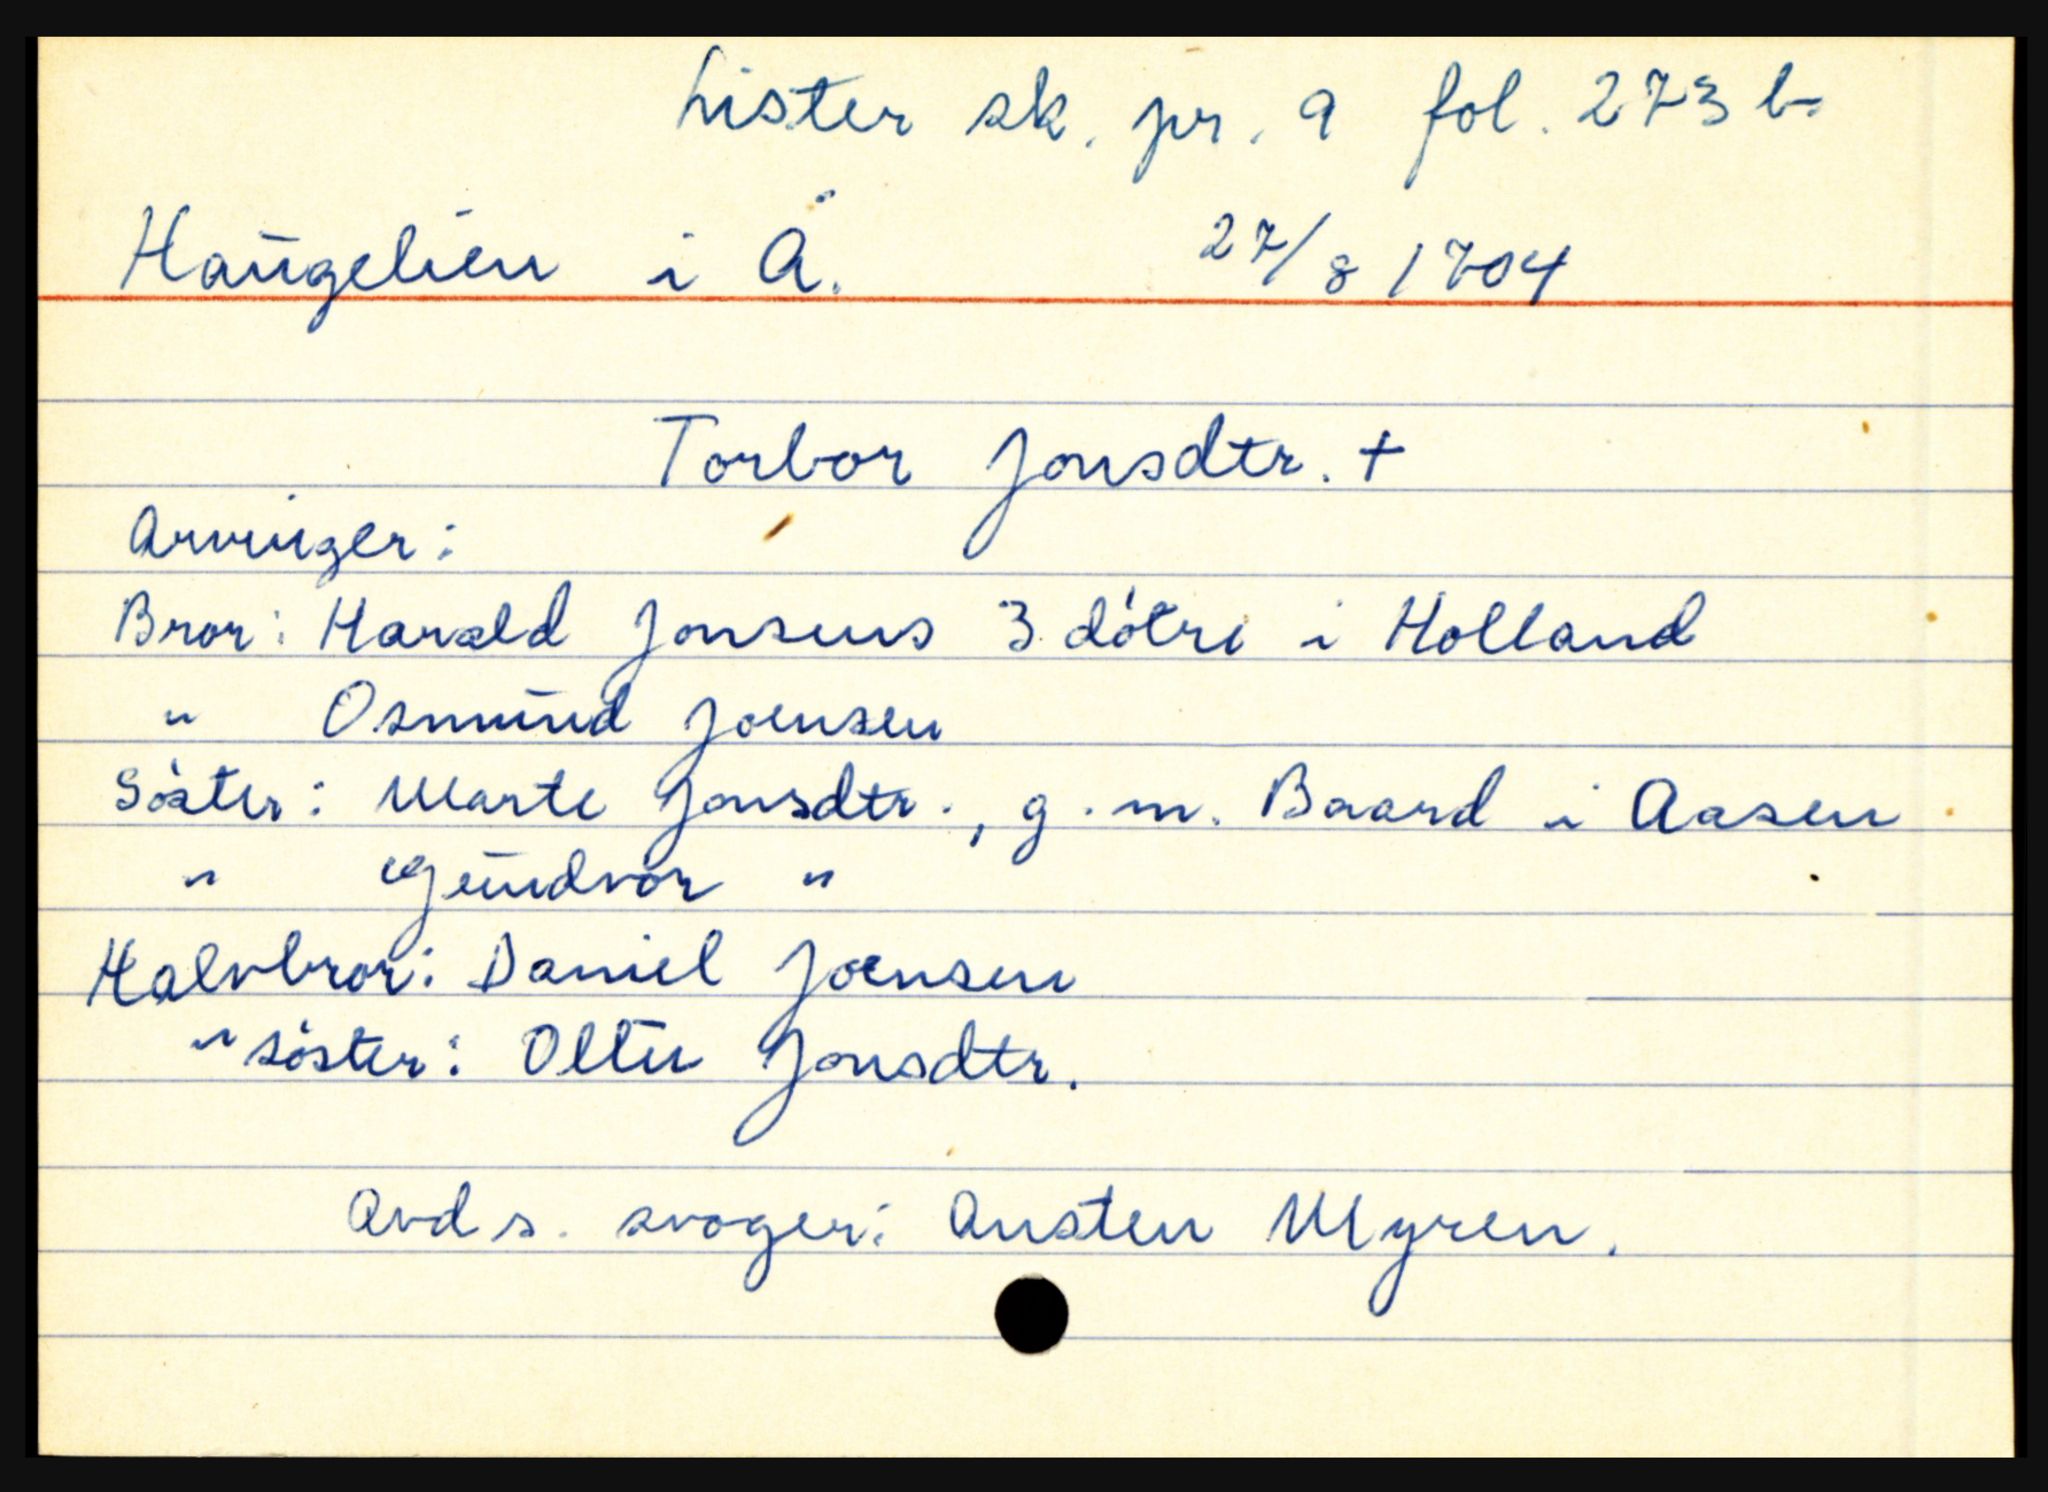 Lister sk. pr. 9 fol. 273 b
Haugelien i Å. 27/8 1704
Torbor Jonsdtr. +
Arvinger:
Bror: Harald Jonsens 3 døtre i Holland
" Osmund Joensen
Søster: Marte Jonsdtr., g.m. Baard i Aasen
" Gundvor "
Halvbror: Daniel Joensen
" søster: Olltu Jonsdtr.
Avd s. svoger: Austen Myren.